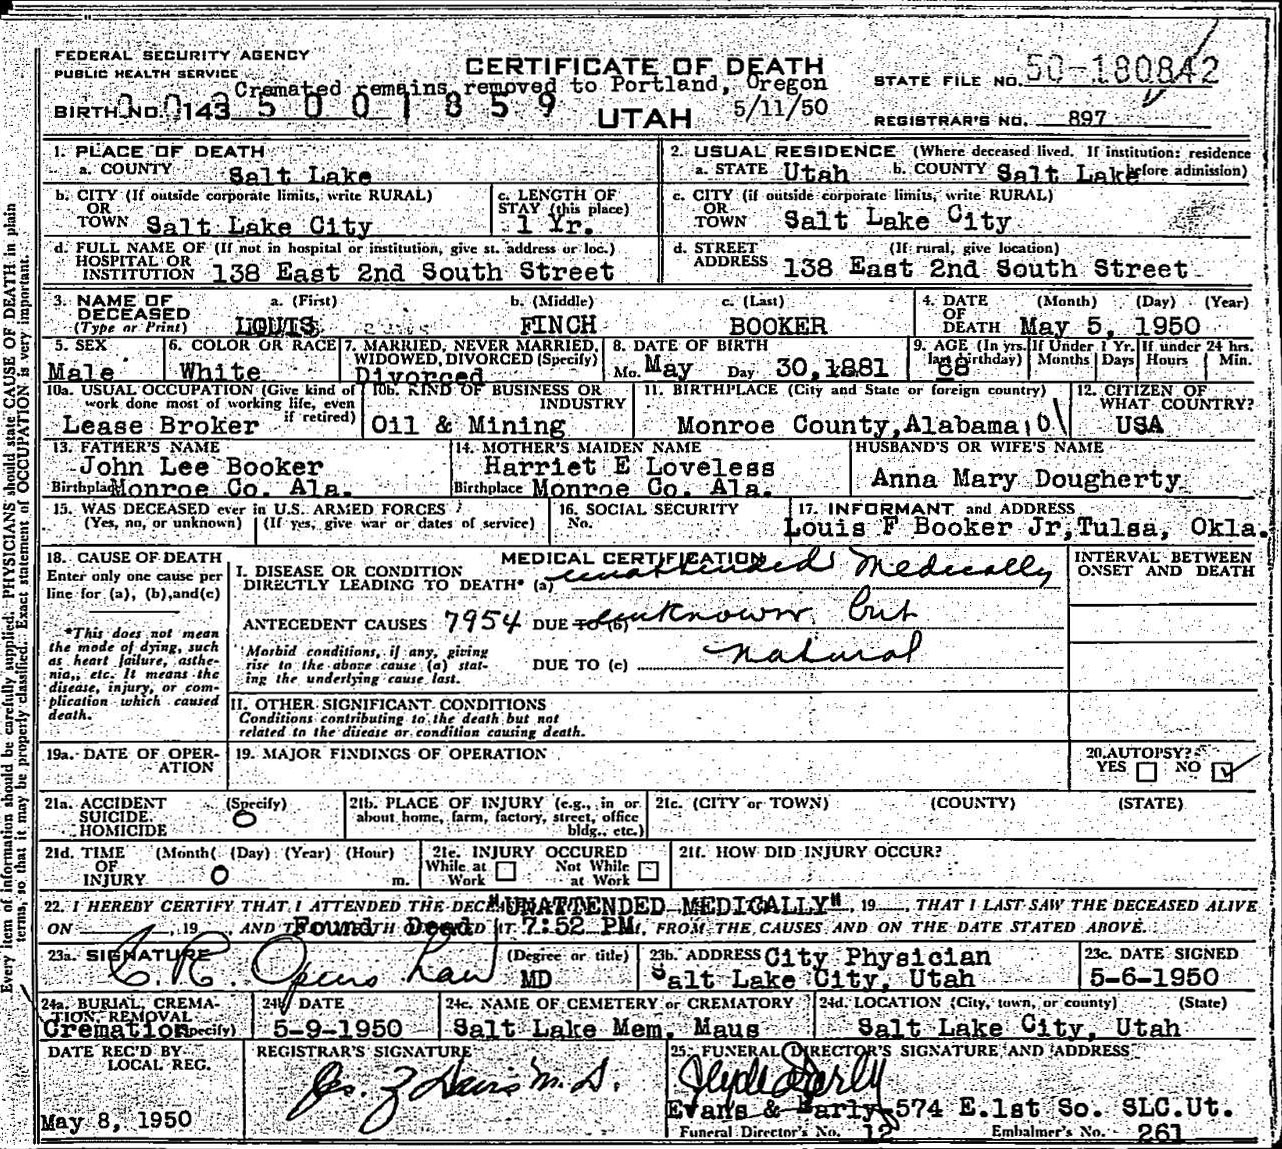 FEDERAL SECURITY AGENCY
PUBLIC HEALTH SERVICE
CERTIFICATE OF DEATH
STATE FILE NO. 50-180842
Cremated remains removed to Portland, Oregon
BIRTH NO. 143 5001859
UTAH
5/11/50
REGISTRAR'S NO. 897
1. PLACE OF DEATH
a. COUNTY Salt Lake
2. USUAL RESIDENCE (Where deceased lived. If institution: residence before admission)
a. STATE Utah b. COUNTY Salt Lake
b. CITY (If outside corporate limits, write RURAL)
OR
TOWN Salt Lake City
c. LENGTH OF
STAY (this place)
1 Yr.
c. CITY (if outside corporate limits, write RURAL)
OR
TOWN Salt Lake City
d. FULL NAME OF (If not in hospital or institution, give st. address or loc.)
HOSPITAL OR
INSTITUTION 138 East 2nd South Street
d. STREET (If rural, give location)
ADDRESS 138 East 2nd South Street
3. NAME OF
DECEASED
(Type or Print)
a. (First) b. (Middle) c. (Last)
LOUIS FINCH BOOKER
4. DATE (Month) (Day) (Year)
OF
DEATH May 5, 1950
5. SEX
Male
6. COLOR OR RACE
White
7. MARRIED, NEVER MARRIED,
WIDOWED, DIVORCED (Specify)
Divorced
8. DATE OF BIRTH
Mo. May Day 30, 1881
9. AGE (In yrs. last birthday)
68
If Under 1 Yr. Months Days
If under 24 hrs. Hours Min.
10a. USUAL OCCUPATION (Give kind of
work done most of working life, even
if retired)
Lease Broker
10b. KIND OF BUSINESS OR
INDUSTRY
Oil & Mining
11. BIRTHPLACE (City and State or foreign country)
Monroe County, Alabama 01
12. CITIZEN OF
WHAT COUNTRY?
USA
13. FATHER'S NAME
John Lee Booker
Birthplace Monroe Co. Ala.
14. MOTHER'S MAIDEN NAME
Harriet E Loveless
Birthplace Monroe Co. Ala.
HUSBAND'S OR WIFE'S NAME
Anna Mary Dougherty
15. WAS DECEASED ever in U.S. ARMED FORCES?
(Yes, no, or unknown) (If yes, give war or dates of service)
16. SOCIAL SECURITY
No.
17. INFORMANT and ADDRESS
Louis F Booker Jr, Tulsa, Okla.
18. CAUSE OF DEATH
Enter only one cause per
line for (a), (b), and (c)
*This does not mean
the mode of dying, such
as heart failure, asthe-
nia, etc. It means the
disease, injury, or com-
plication which caused
death.
MEDICAL CERTIFICATION
I. DISEASE OR CONDITION
DIRECTLY LEADING TO DEATH* (a) unattended Medically
ANTECEDENT CAUSES 7954 DUE TO (b) unknown but
Morbid conditions, if any, giving
rise to the above cause (a) stat-
ing the underlying cause last.
DUE TO (c) natural
INTERVAL BETWEEN
ONSET AND DEATH
II. OTHER SIGNIFICANT CONDITIONS
Conditions contributing to the death but not
related to the disease or condition causing death.
19a. DATE OF OPER-
ATION
19. MAJOR FINDINGS OF OPERATION
20. AUTOPSY?
YES NO
21a. ACCIDENT (Specify)
SUICIDE
HOMICIDE
0
21b. PLACE OF INJURY (e.g., in or
about home, farm, factory, street, office
bldg., etc.)
21c. (CITY or TOWN) (COUNTY) (STATE)
21d. TIME (Month) (Day) (Year) (Hour)
OF
INJURY 0 m.
21e. INJURY OCCURED
While at Work Not While at Work
21f. HOW DID INJURY OCCUR?
22. I HEREBY CERTIFY THAT I ATTENDED THE DECE "UNATTENDED MEDICALLY", 19, THAT I LAST SAW THE DECEASED ALIVE
ON , 19 , AND T Found Dead AT 7:52 PM, FROM THE CAUSES AND ON THE DATE STATED ABOVE.
23a. SIGNATURE
(Degree or title)
MD
23b. ADDRESS City Physician
Salt Lake City, Utah
23c. DATE SIGNED
5-6-1950
24a. BURIAL, CREMA-
TION, REMOVAL
(Specify)
Cremation
24b. DATE
5-9-1950
24c. NAME OF CEMETERY or CREMATORY
Salt Lake Mem. Maus
24d. LOCATION (City, town, or county) (State)
Salt Lake City, Utah
DATE REC'D BY
LOCAL REG.
May 8, 1950
REGISTRAR'S SIGNATURE
25. FUNERAL DIRECTOR'S SIGNATURE AND ADDRESS
Evans & Early, 574 E. 1st So. SLC. Ut.
Funeral Director's No. 12 Embalmer's No. 261
Every item of information should be carefully supplied. PHYSICIANS should state CAUSE OF DEATH in plain
terms, so that it may be properly classified. Exact statement of OCCUPATION is very important.